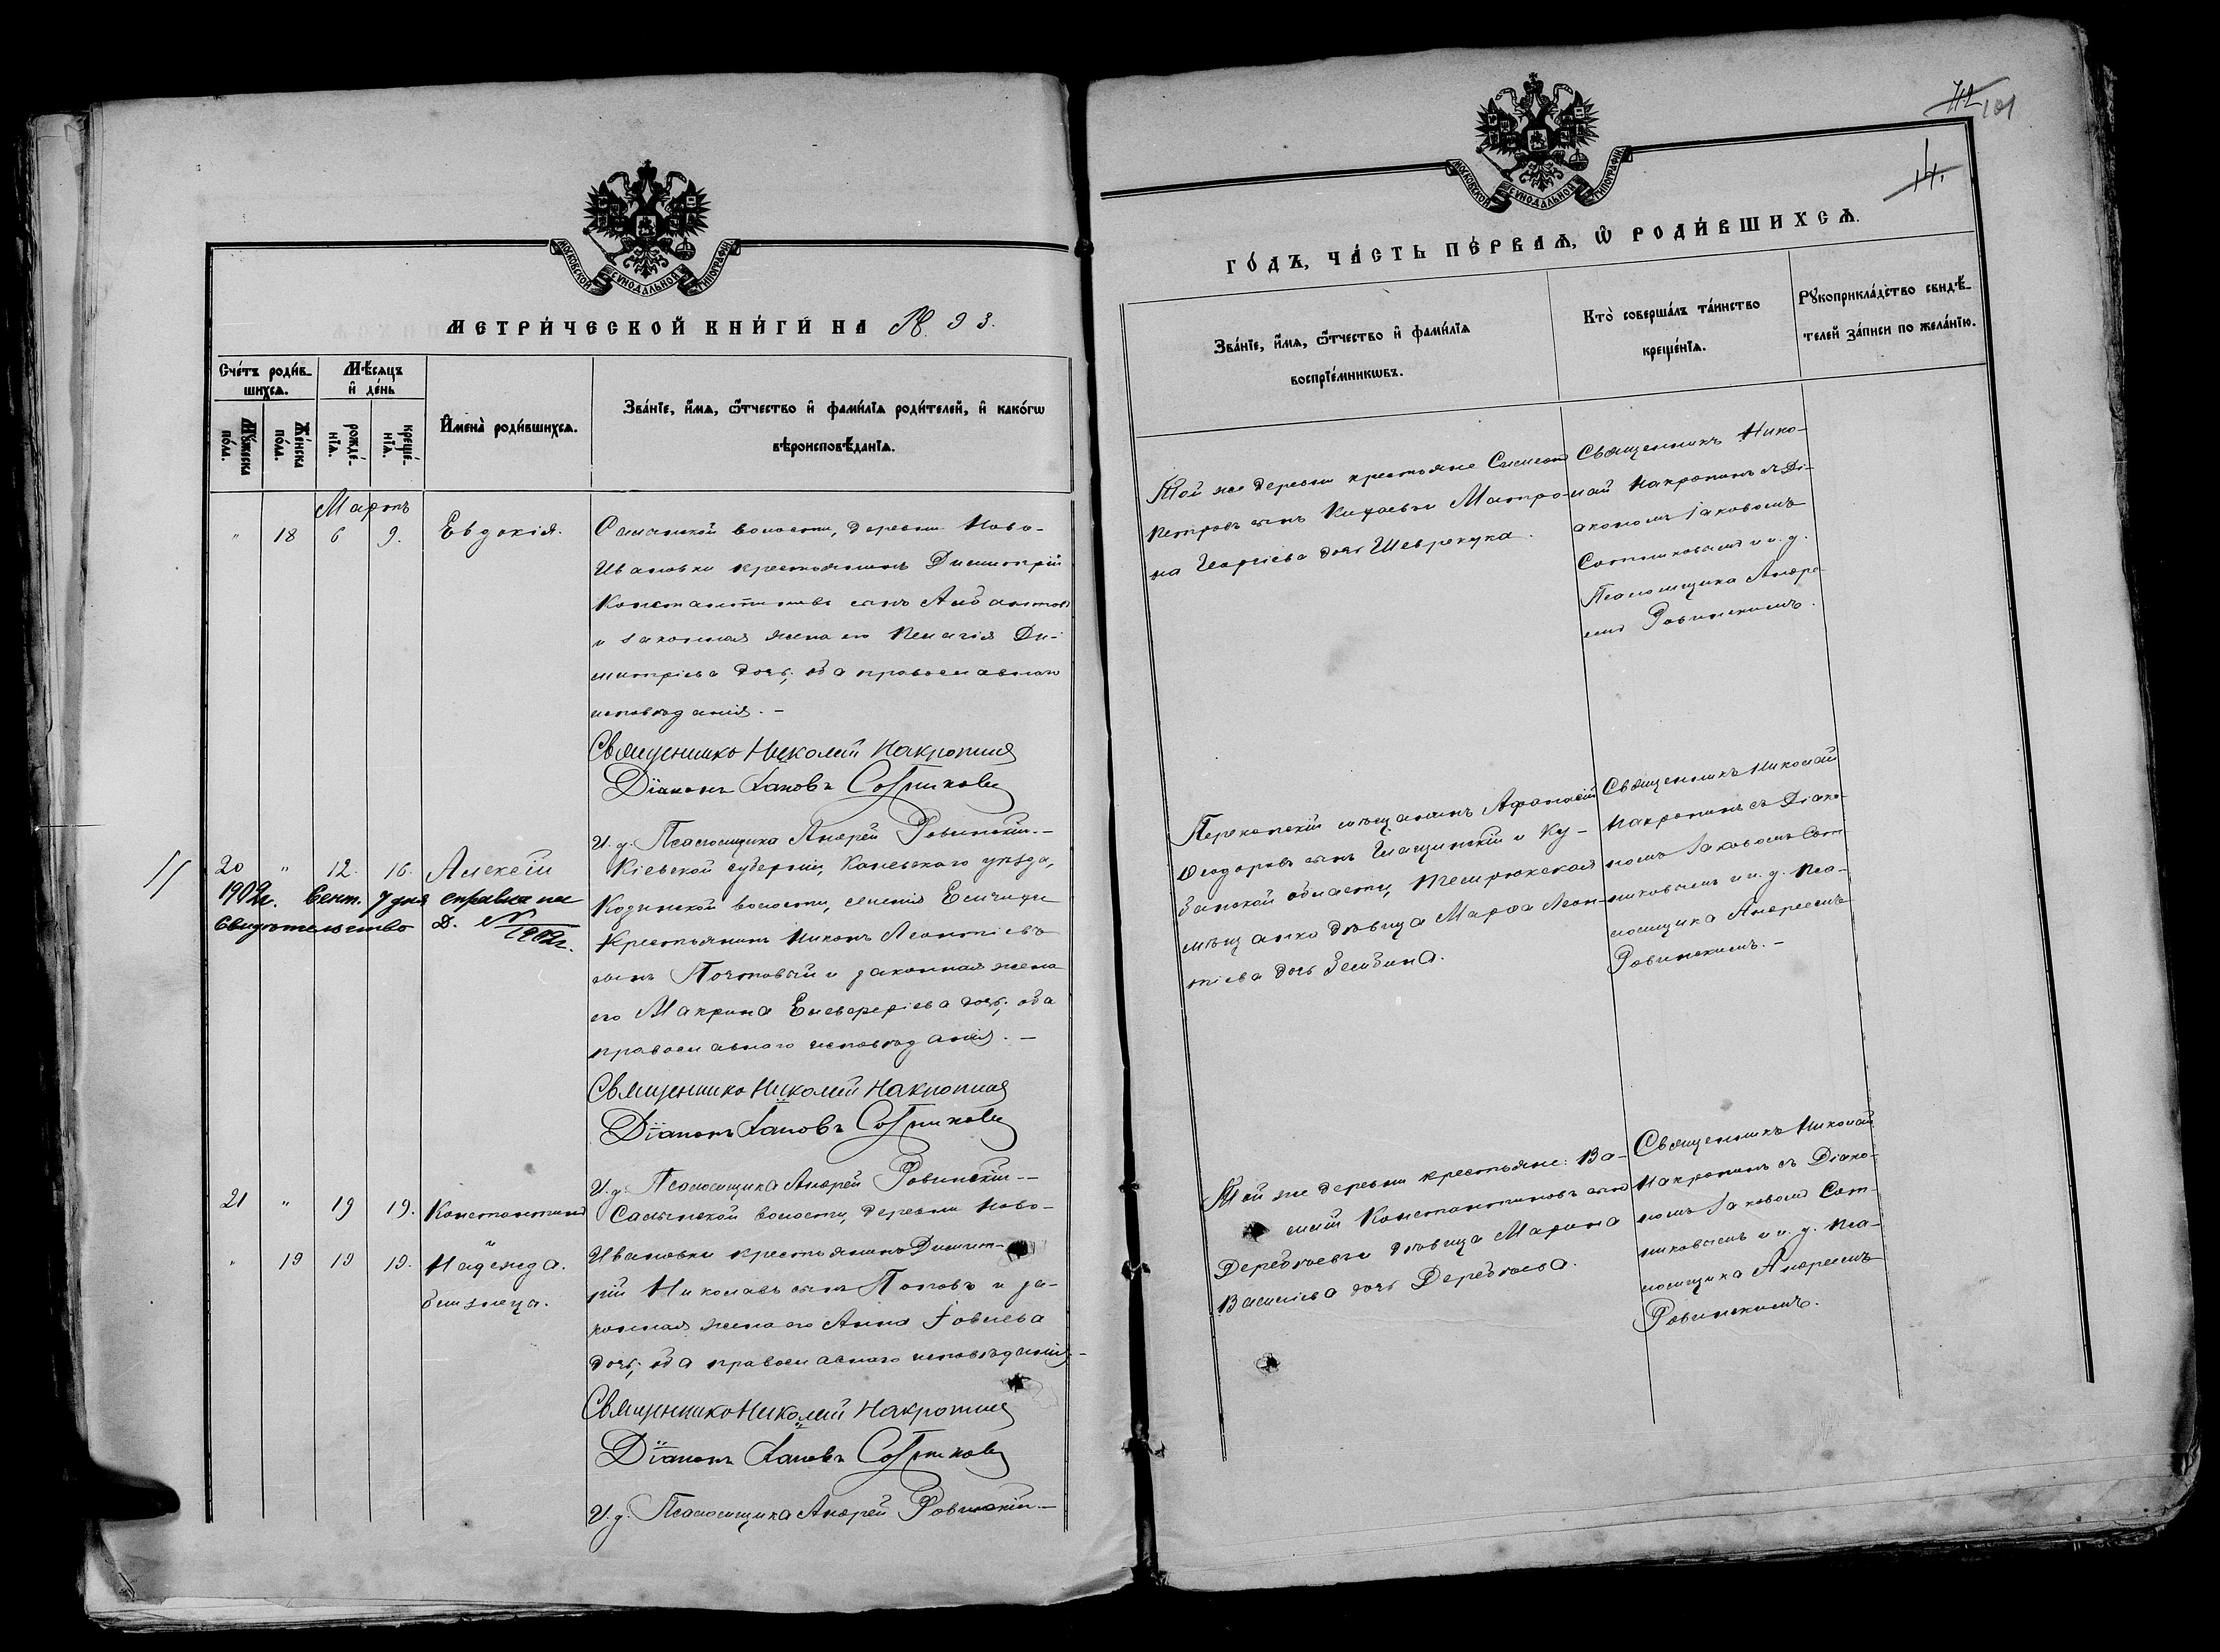 МОСКОВСКОЙ СѴНОДАЛЬНОЙ ТИПОГРАФІИ
МЕТРИ́ЧЕСКОЙ КНИ́ГИ НА 1893.
Сче́тъ роди́в-
шихсѧ.
Мѣ́сѧцъ
и҆ де́нь
Мꙋ́жеска
по́ла.
Же́нска
по́ла.
рожде́-
нїѧ.
креще́-
нїѧ.
И҆мена̀ роди́вшихсѧ.
Зва́нїе, и҆́мѧ, ѻ҆́тчество и҆ фами́лїѧ роди́телей, и҆ како́гѡ
вѣроисповѣ́данїѧ.
Мартъ
" 18 6 9. Евдокія.
Салынской волости, деревни Ново-
Ивановки крестьянинъ Димитрій
Константиновъ сынъ
и законная жена его Пелагія Ди-
митріева дочь; оба православнаго
исповѣданія. –
Священникъ Николай Накропинъ
Діаконъ Іаковъ Сотниковъ
И. д. Псаломщика Андрей Ровинскій. –
20 " 12. 16. Алексій
1902г. Сент. 7 дня справка на
свидѣтельство Д. № 1902г.
Кіевской губерніи, Каневскаго уѣзда,
Козинской волости, селенія
крестьянинъ Никонъ Леонтіевъ
сынъ Почтовый и законная жена
его Макрина Елеаферіева дочь; оба
православнаго исповѣданія. –
Священникъ Николай Накропинъ
Діаконъ Іаковъ Сотниковъ
И. д. Псаломщика Андрей Ровинскій. –
21 " 19 19. Константинъ
и
" 19 19 19. Надежда.
близнецы.
Салынской волости, деревни Ново-
Ивановки крестьянинъ Димит-
рій Николаевъ сынъ Поповъ и за-
конная жена его Анна Іовлева
дочь; оба православнаго исповѣданія. –
Священникъ Николай Накропинъ
Діаконъ Іаковъ Сотниковъ
И. д. Псаломщика Андрей Ровинскій. –
112 101
14.
МОСКОВСКОЙ СѴНОДАЛЬНОЙ ТИПОГРАФІИ
ГО́ДЪ, ЧА́СТЬ ПЕ́РВАѦ, Ѡ҆ РОДИ́ВШИХСѦ.
Зва́нїе, и҆́мѧ, ѻ҆́тчество и҆ фами́лїѧ
воспрїе́мникѡвъ.
Кто̀ соверша́лъ та́инство
креще́нїѧ.
Рꙋкоприкла́дство свидѣ́-
телей за́писи по жела́нїю.
Той же деревни крестьяне Симеонъ
Петровъ сынъ и Матро-
на Георгіева дочь
Священникъ Нико-
лай Накропинъ съ Ді-
акономъ Іаковомъ
Сотниковымъ и и. д.
Псаломщика Андре-
емъ Ровинскимъ.
Перекопскій мѣщанинъ Афанасій
Ѳеодоровъ сынъ и Ку-
банской области, Темрюкская
мѣщанка дѣвица Марѳа Леон-
тіева дочь Зембина.
Священникъ Николай
Накропинъ съ Діако-
номъ Іаковомъ Сот-
никовымъ и и. д. Пса-
ломщика Андреемъ
Ровинскимъ. –
Той же деревни крестьяне: Ва-
силій Константиновъ сынъ
и дѣвица Марина
Василіева дочь
Священникъ Николай
Накропинъ съ Діако-
номъ Іаковомъ Сот-
никовымъ и и. д. Пса-
ломщика Андреемъ
Ровинскимъ.